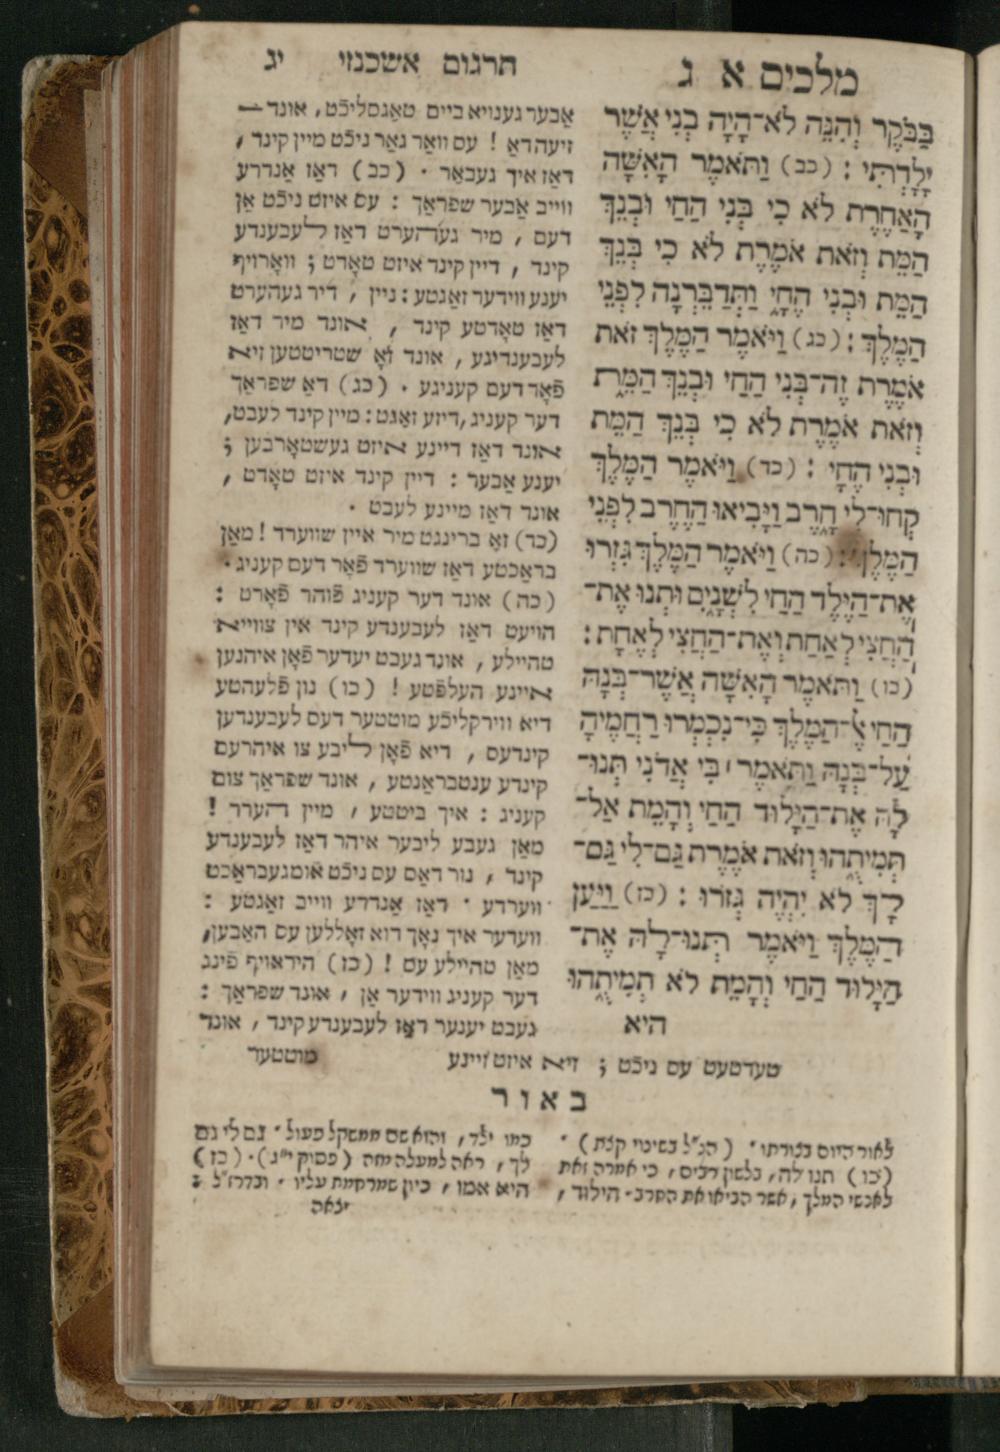 מלכים א ג
תרגום אשכנזי יג
בַּבֹּקֶר וְהִנֵּה לֹא־הָיָה בְנִי אֲשֶׁר
יָלָדְתִּי : (כב) וַתֹּאמֶר הָאִשָּׁה
הָאַחֶרֶת לֹא כִי בְּנִי הַחַי וּבְנֵךְ
הַמֵּת וְזֹאת אֹמֶרֶת לֹא כִי בְּנֵךְ
הַמֵּת וּבְנִי הֶחָי וַתְּדַבֵּרְנָה לִפְנֵי
הַמֶּלֶךְ : (כג) וַיֹּאמֶר הַמֶּלֶךְ זֹאת
אֹמֶרֶת זֶה־בְּנִי הַחַי וּבְנֵךְ הַמֵּת
וְזֹאת אֹמֶרֶת לֹא כִי בְּנֵךְ הַמֵּת
וּבְנִי הֶחָי : (כד) וַיֹּאמֶר הַמֶּלֶךְ
קְחוּ־לִי חָרֶב וַיָּבִיאוּ הַחֶרֶב לִפְנֵי
הַמֶּלֶךְ : (כה) וַיֹּאמֶר הַמֶּלֶךְ גִּזְרוּ
אֶת־הַיֶּלֶד הַחַי לִשְׁנָיִם וּתְנוּ אֶת־
הַחֲצִי לְאַחַת וְאֶת־הַחֲצִי לְאֶחָת :
(כו) וַתֹּאמֶר הָאִשָּׁה אֲשֶׁר־בְּנָהּ
הַחַי אֶל־הַמֶּלֶךְ כִּי־נִכְמְרוּ רַחֲמֶיהָ
עַל־בְּנָהּ וַתֹּאמֶר ׀ בִּי אֲדֹנִי תְּנוּ־
לָהּ אֶת־הַיָּלוּד הַחַי וְהָמֵת אַל־
תְּמִיתֻהוּ וְזֹאת אֹמֶרֶת גַּם־לִי גַם־
לָךְ לֹא יִהְיֶה גְּזֹרוּ : (כז) וַיַּעַן
הַמֶּלֶךְ וַיֹּאמֶר תְּנוּ־לָהּ אֶת־
הַיָּלוּד הַחַי וְהָמֵת לֹא תְמִיתֻהוּ
היא
אָבער גענויא ביים טאָגסליכֿט, אונד
זיעהדאַ ! עס וואַר גאַר ניכֿט מיין קינד ,
דאַז איך געבאַר · (כב) דאַז אַנדרע
ווייב אַבער שפראַך : עס איזט ניכֿט אַן
דעם , מיר געהערט דאַז לעבענדע
קינד , דיין קינד איזט טאָדט ; וואָרויף
יענע ווידער זאַגטע : ניין , דיר געהערט
דאַז טאָדטע קינד , אונד מיר דאַז
לעבענדיגע , אונד זאָ שטריטטען זיא
פֿאָר דעם קעניגע · (כג) דאַ שפראַך
דער קעניג , דיזע זאַגט : מיין קינד לעבט,
אונד דאַז דיינע איזט געשטאָרבען ;
יענע אַבער : דיין קינד איזט טאָדט ,
אונד דאַז מיינע לעבט ·
(כד) זאָ ברינגט מיר איין שווערד ! מאַן
בראַכטע דאַז שווערד פֿאָר דעם קעניג ·
(כה) אונד דער קעניג פֿוהר פֿאָרט :
הויעט דאַז לעבענדע קינד אין צווייא
טהיילע , אונד געבט יעדער פֿאָן איהנען
איינע העלפֿטע ! (כו) נון פֿלעהטע
דיא ווירקליכֿע מוטטער דעס לעבענדען
קינדעס , דיא פֿאָן ליבע צו איהרעם
קינדע ענטבראַנטע , אונד שפראַך צום
קעניג : איך ביטטע , מיין הערר !
מאַן געבע ליבער איהר דאַז לעבענדע
קינד , נור דאַס עס ניכֿט אומגעבראַכט
ווערדע · דאַז אַנדרע ווייב זאַגטע :
ווערער איך נאָך דוא זאָללען עס האַבען,
מאַן טהיילע עס ! (כז) היראויף פֿינג
דער קעניג ווידער אַן , אונד שפראַך :
געבט יענער דאַז לעבענדע קינד , אונד
טעדטעט עס ניכֿט ; זיא איזט זיינע
מוטטער
באור
לאור היום בצורתו · (הנ"ל בשינוי קצת) ·
(כו) תנו לה, בלשון רבים, כי אמרה זאת
לאנשי המלך , אשר הביאו את החרב · הילוד,
כמו ילד, והוא שם ממשקל פעול · גם לי גם
לך, ראה למעלה מזה (פסוק י"ג) · (כז)
היא אמו , כיון שמרחמת עליו · ובדרז"ל :
יצאה